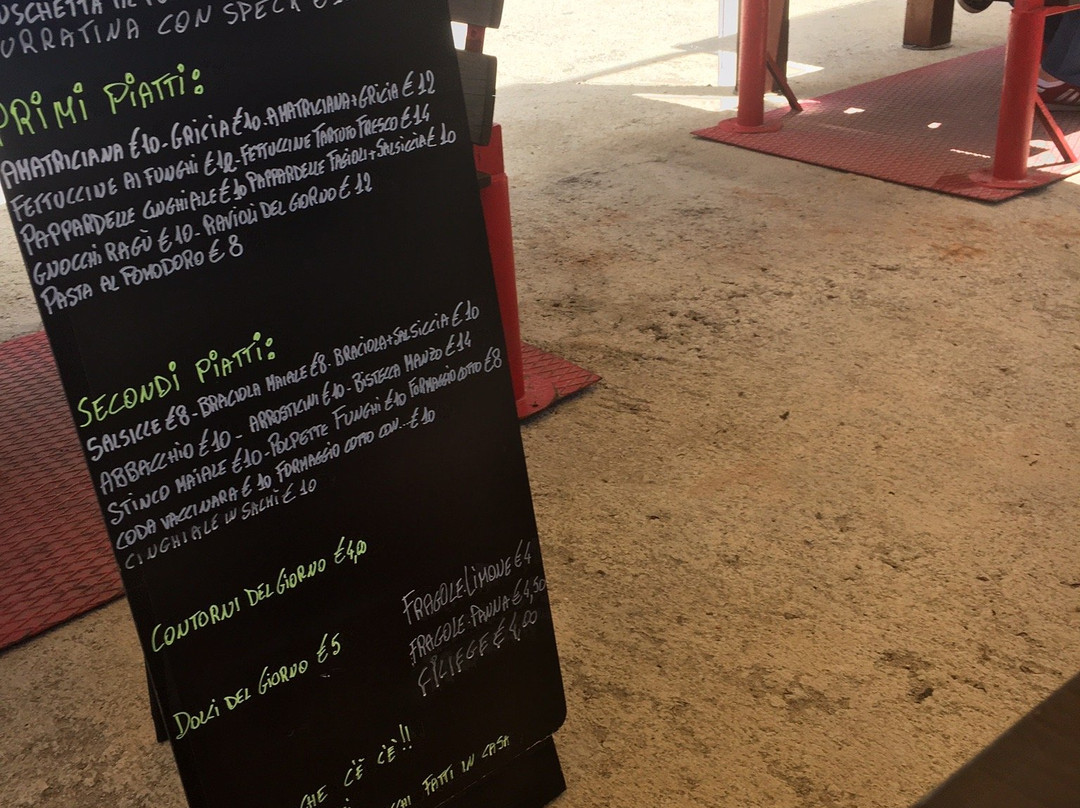 URRATINA CON SPECK
PRIMI PIATTI:
AMATRICIANA €10-GRICIA €10-AMATRICIANA+GRICIA €12
FETTUCCINE AI FUNGHI €12-FETTUCCINE TARTUFO FRESCO €14
PAPPARDELLE CINGHIALE €10 PAPPARDELLE FAGIOLI+SALSICCIA €10
GNOCCHI RAGÙ €10-RAVIOLI DEL GIORNO €12
PASTA AL POMODORO €8
SECONDI PIATTI:
SALSICCE €8-BRACIOLA MAIALE €8-BRACIOLA+SALSICCIA €10
ABBACCHIO €10-ARROSTICINI €10-BISTECCA MANZO €14
STINCO MAIALE €10-POLPETTE FUNGHI €10 FORMAGGIO COTTO €8
CODA VACCINARA €10 FORMAGGIO COTTO CON...€10
CINGHIALE IN SALMÌ €10
CONTORNI DEL GIORNO €4,00
DOLCI DEL GIORNO €5
FRAGOLE-LIMONE €4
FRAGOLE-PANNA €4,50
CILIEGE €4,00
CHE C'È C'È!!
FATTI IN CASA